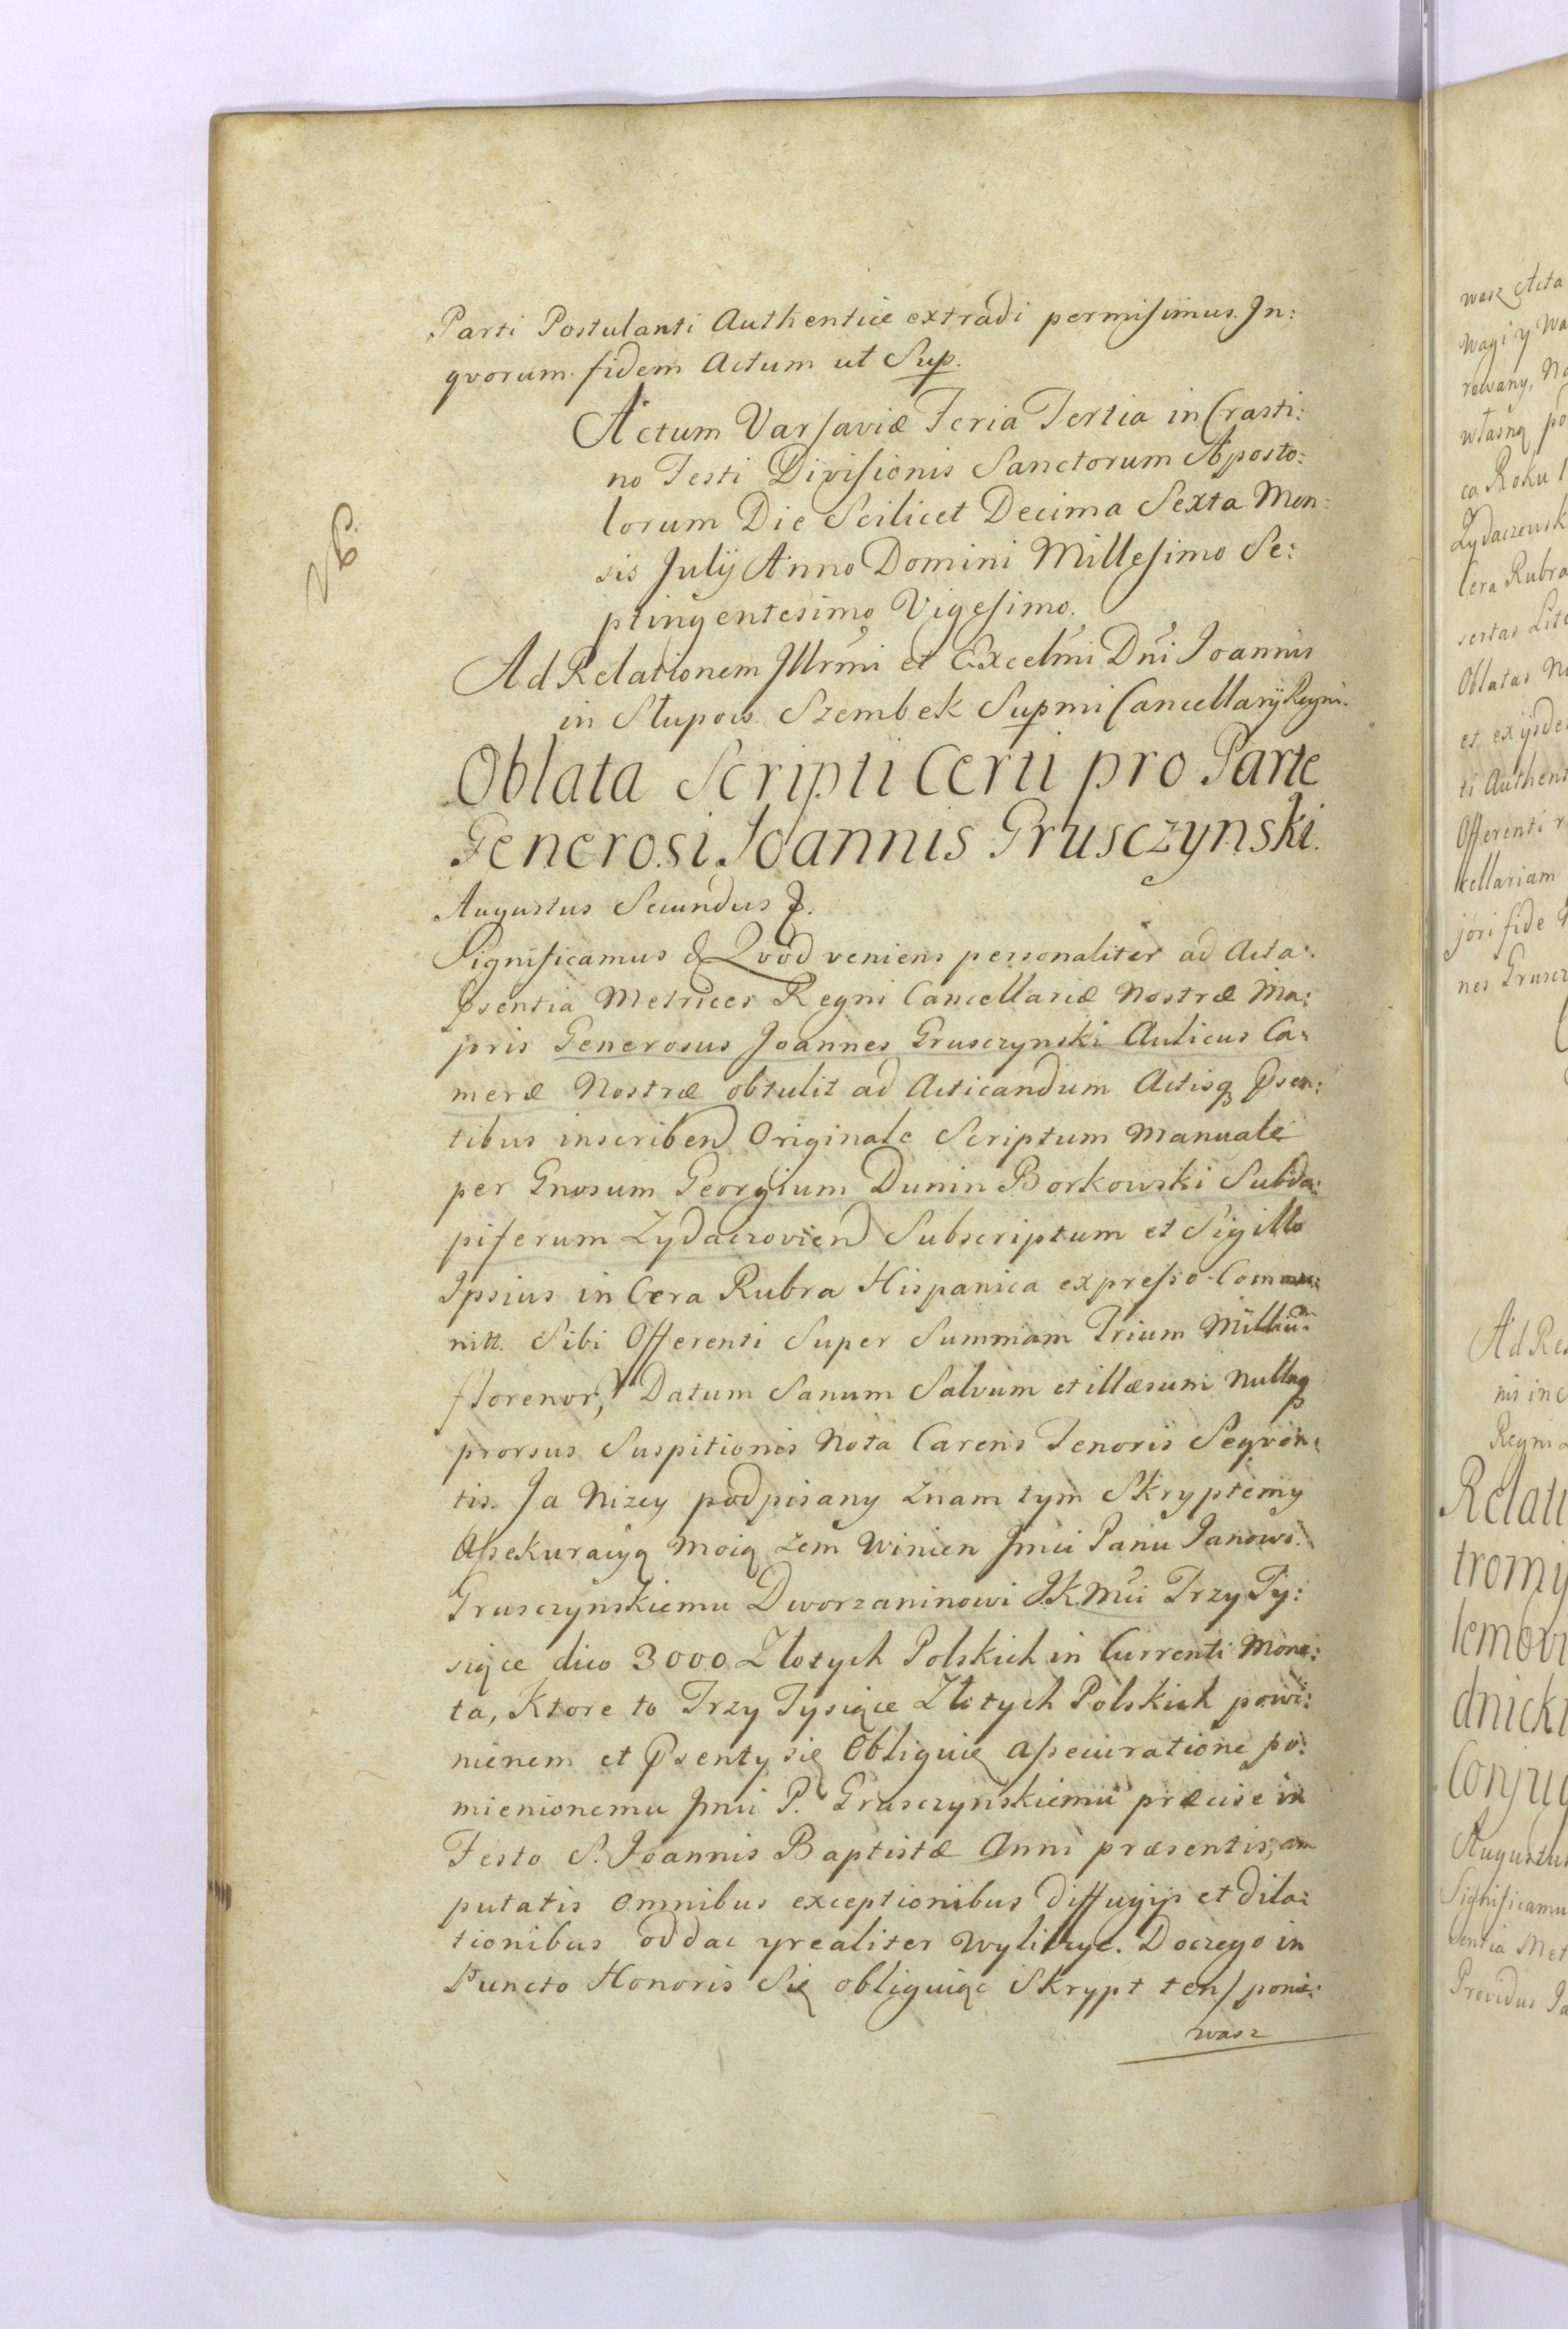 Parti Postulanti Authentice extradi permisimus. In:
qvorum fidem Actum ut Sup.
Actum Varsaviæ Feria Tertia in Crasti:
no Festi Divisionis Sanctorum Aposto:
lorum Die Scilicet Decima Sexta Men:
sis Julij Anno Domini Millesimo Se:
ptingentesimo Vigesimo.
Ad Relationem Illrmi et Excelmi Dni Joannis
in Słupow Szembek Supmi Cancellarij Regni.
Oblata Scripti Certi pro Parte
Generosi Joannis Grusczynski.
Augustus Secundus &.
Significamus & Qvod veniens personaliter ad Acta
Psentia Metrices Regni Cancellariæ Nostræ Ma:
joris Generosus Joannes Grusczynski Aulicus Ca:
meræ Nostræ obtulit ad Acticandum Actisq Psen:
tibus inscribend Originale Scriptum Manuale
per Gnosum Georgium Dunin Borkowski Subda:
piferum Zydaczoviend Subscriptum et Sigillo
Ipsius in Cera Rubra Hispanica expresso Commu:
nitt. Sibi Offerenti Super Summam Trium Milliu:
florenor, Datum Sanum Salvum et illæsum Nullaq
prorsus Suspitionis Nota Carens Tenoris Seqven:
tis. Ja Nizey podpisany Znam tym Skryptemy
Assekuracyą Moią Zem Winien Jmci Panu Janowi
Grusczynskiemu Dworzaninowi J.K.Mci Trzy Ty:
siące dico 3000 Złotych Polskich in Currenti Mone:
ta, Ktore to Trzy Tysiące Złotych Polskich powi:
nienem et Psenty się Obliguię assecuratione po:
mienionemu Jmci P. Grusczynskiemu præcise in
Festo S. Joannis Baptistæ Anni præsentis, am
putatis omnibus exceptionibus diffugijs et dila:
tionibus oddac yrealiter wyliczyc. Doczego in
Puncto Honoris Się obliguiąc Skrypt ten/ ponie:
wasz
wasz Acta
wagi y wa
rowany, No
własną po
ca Roku
Zydaczowsk
Cera Rubra
sertas Lite
Oblatas
et exijsde
ti Authent
Offerenti r
cellariam
jori fide
nes Grusc
Ad Re
nis in
Regni
Relati
tromij
lemovi
dnicki
Conjug
Augustus
Significamu
sentia Met
Providus Ja